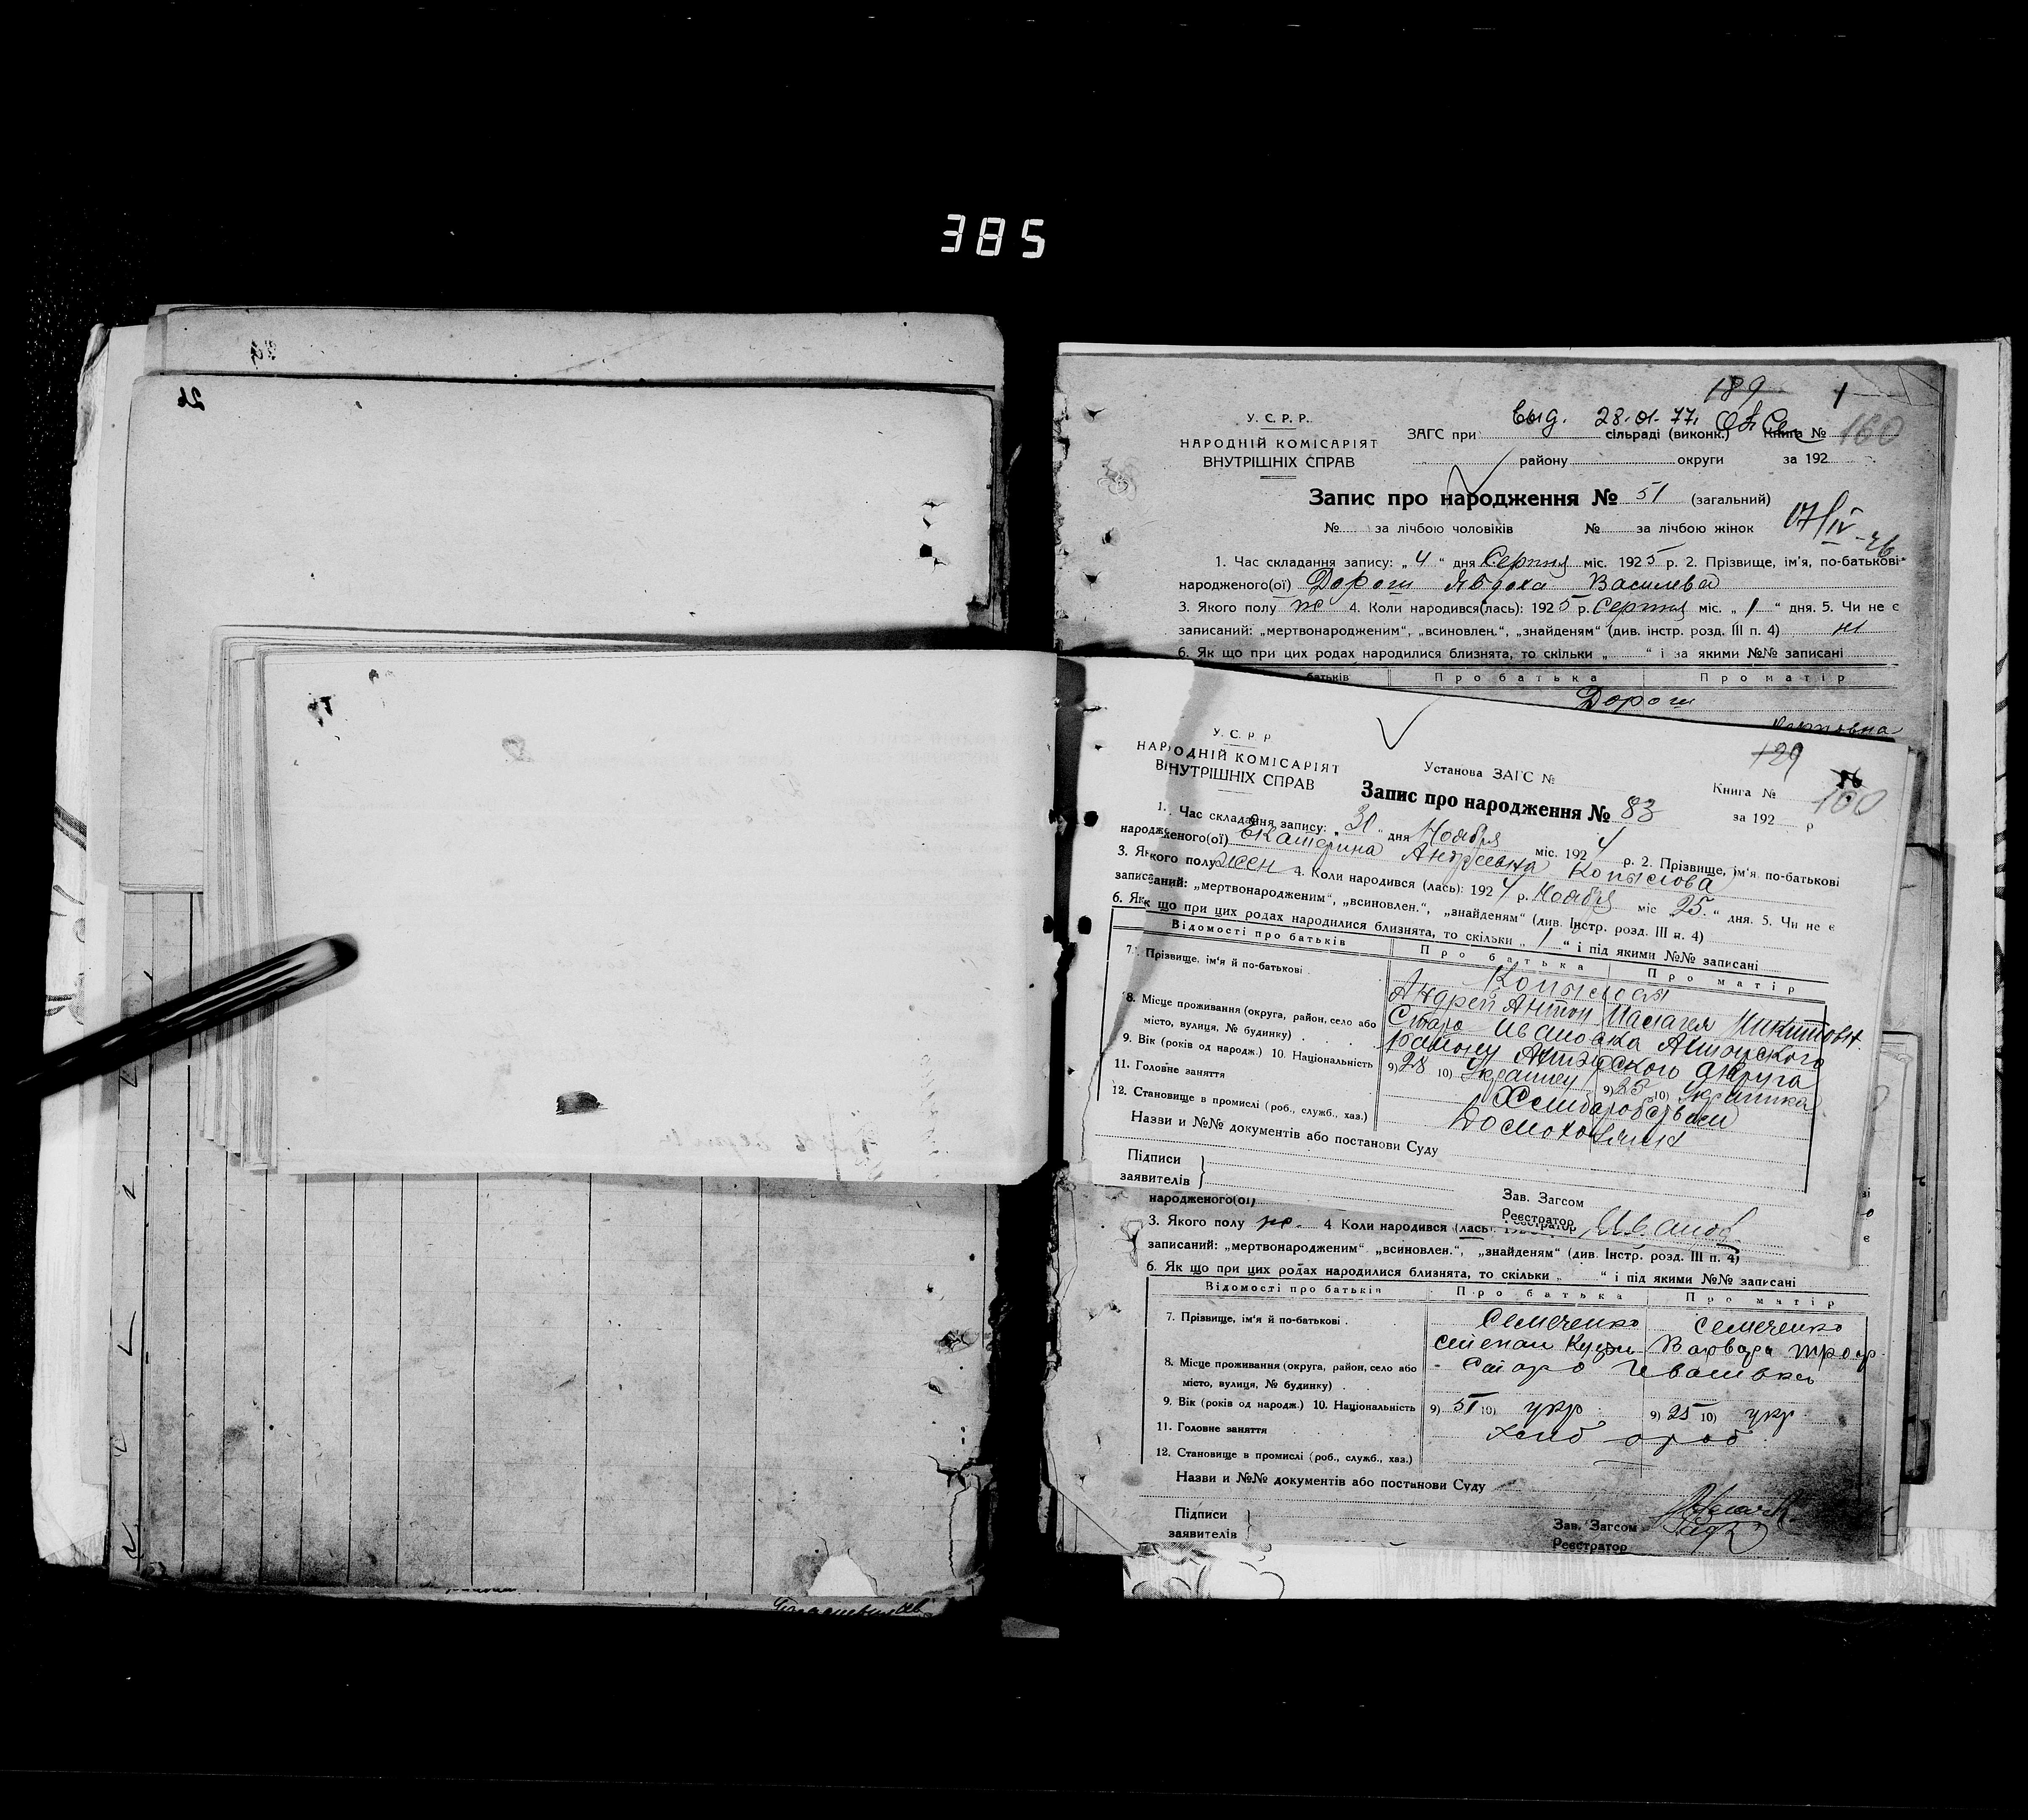 385
26
189 1
выд. 28.01.77.
У. С. Р. Р.
НАРОДНІЙ КОМІСАРІЯТ
ВНУТРІШНІХ СПРАВ
ЗАГС при сільраді (виконк.) Книга № 160
району округи за 192
Запис про народження № 51 (загальний)
№ за лічбою чоловіків № за лічбою жінок
17/IV-26
1. Час складання запису: „4“ дня Серпня міс. 1925 р. 2. Прізвище, ім'я, по-батькові
народженого(ої) Дорош Явдоха Василева
3. Якого полу ж 4. Коли народився(лась): 1925 р. Серпня міс. „1“ дня. 5. Чи не є
записаний: „мертвонародженим“, „всиновлен.“, „знайденям“ (див. інстр. розд. III п. 4) ні
6. Як що при цих родах народилися близнята, то скільки „ “ і за якими №№ записані
батьків Про батька Про матір
Дорош
У. С. Р. Р
НАРОДНІЙ КОМІСАРІЯТ
ВНУТРІШНІХ СПРАВ
Установа ЗАГС №
129
Книга № 160
Запис про народження № 83
за 192 р
1. Час складання запису: „31“ дня Ноября міс. 1924 р. 2. Прізвище, ім'я по-батькові
народженого(ої) Екатерина Андреевна Копыслова
3. Якого полу жен 4. Коли народився (лась): 1924 р. Ноября міс „25“ дня. 5. Чи не є
записаний: „мертвонародженим“, „всиновлен.“, „знайденям“ (див. Інстр. розд. III п. 4)
6. Як що при цих родах народилися близнята, то скільки „1“ і під якими №№ записані
Відомості про батьків Про батька Про матір
7. Прізвище, ім'я й по-батькові
Андрей Антон
8. Місце проживання (округа, район, село або Старо Ивановка
місто, вулиця, № будинку) району округа
9. Вік (років од народж.) 10. Національність 9) 28 10) Украинец 9) 25 10) Украинка
11. Головне заняття Хлиборобством
12. Становище в промислі (роб., служб., хаз.)
Назви и №№ документів або постанови Суду
Підписи
заявителів
Зав. Загсом
Реєстратор Иванов
народженого(ої)
3. Якого полу ж. 4 Коли народився (лась)
записаний: „мертвонародженим“ „всиновлен.“, „знайденям“ (див. Інстр. розд. III п. 4)
6. Як що при цих родах народилися близнята, то скільки „ “ і під якими №№ записані
Відомості про батьків Про батька Про матір
7. Прізвище, ім'я й по-батькові Семеченко Семеченко
Степан Кузм Варвара Троф
8. Місце проживання (округа, район, село або Старо Ивановка
місто, вулиця, № будинку)
9. Вік (років од народж.) 10. Національність 9) 51 10) укр 9) 25 10) укр
11. Головне заняття хлиб ороб
12. Становище в промислі (роб., служб., хаз.)
Назви и №№ документів або постанови Суду
Підписи
заявителів
Зав. Загсом
Реєстратор